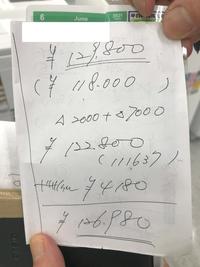 6 June
¥ 129,800
(¥ 118.000)
△2000+△7000
¥ 122.800
(111637)
¥4180
¥ 126.980